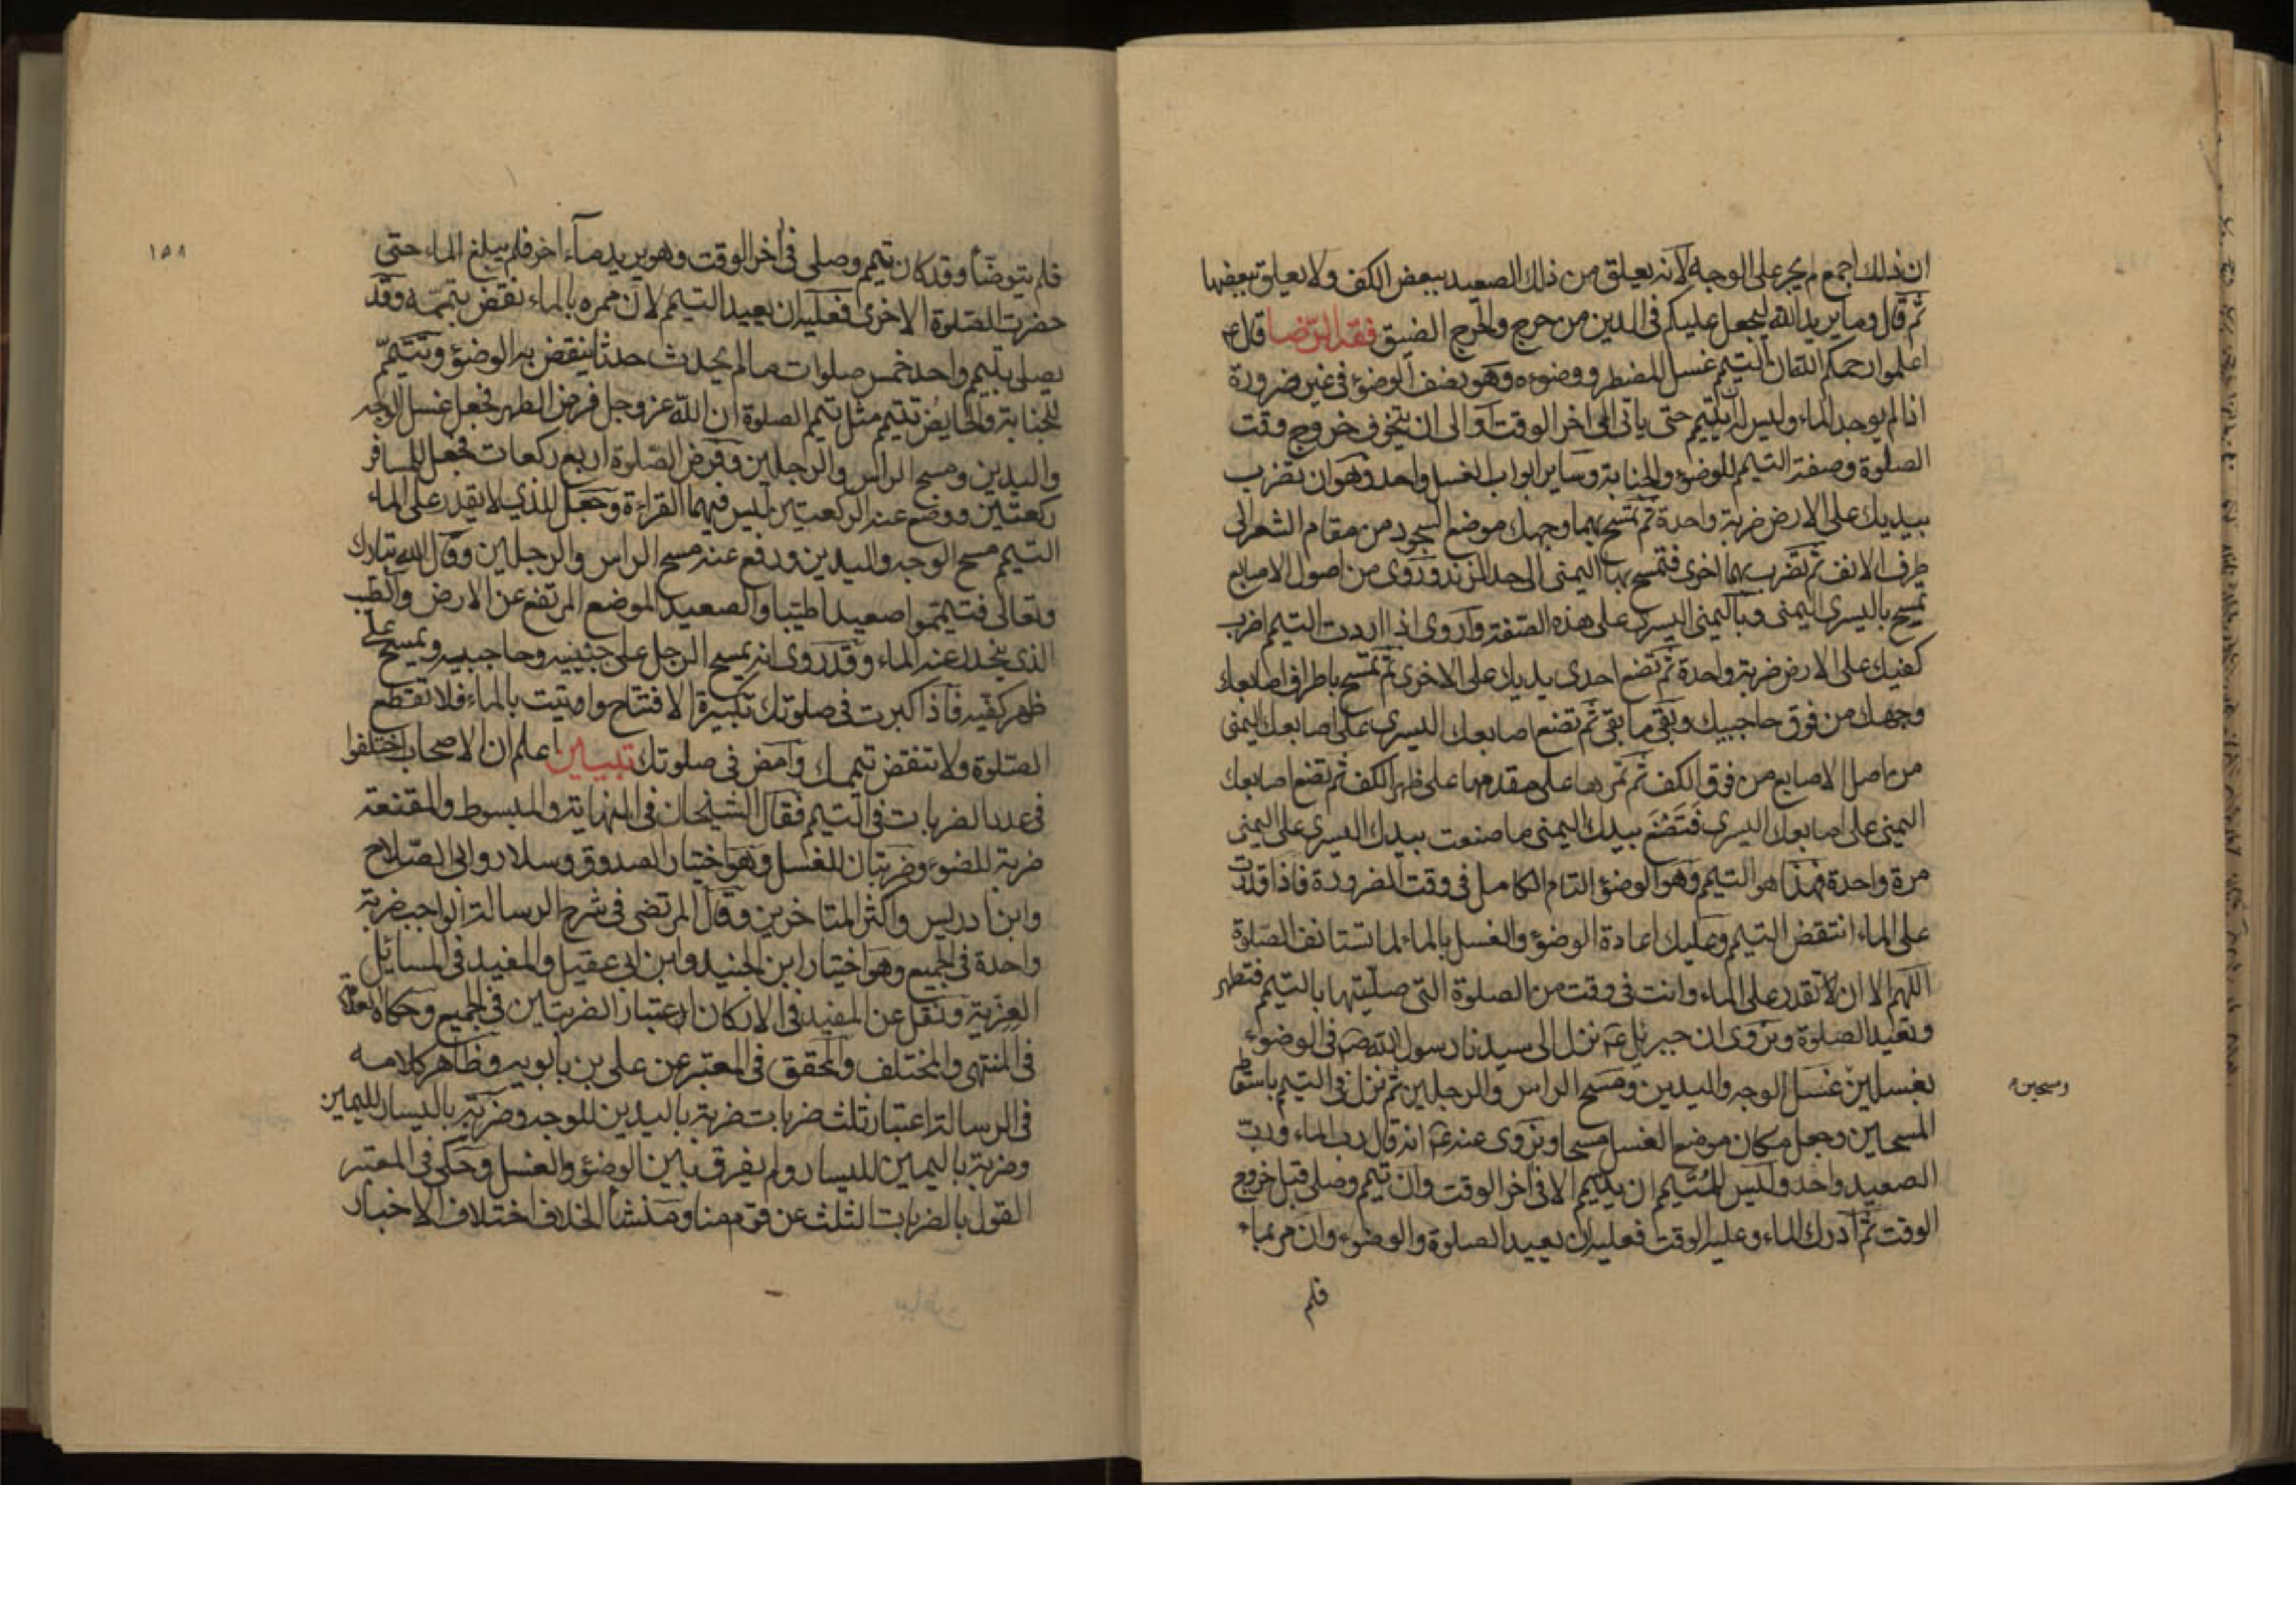 ان ذلك اجمع لم يجر على الوجه لانه يعلق من ذلك الصعيد ببعض الكف ولا يعلق ببعضها
ثم قال وما يريد الله ليجعل عليكم فى الدين من حرج والحرج الضيق فقه الرضا قال ع
اعلموا رحمكم الله ان التيمم غسل المضطر ووضوءه وهو نصف الوضوء فى غير ضرورة
اذا لم يوجد الماء وليس له ان يتيمم حتى ياتى الى اخر الوقت او الى ان يتخوف خروج وقت
الصلوة وصفة التيمم للوضوء والجنابة وساير ابواب الغسل واحد وهو ان تضرب
بيديك على الارض ضربة واحدة ثم تمسح بهما وجهك موضع السجود من مقام الشعر الى
طرف الانف ثم تضرب بهما اخرى فتمسح بها اليمنى الى حد الزند وروى من اصول الاصابع
تمسح باليسرى اليمنى وباليمنى اليسرى على هذه الصفة واروى اذا اردت التيمم اضرب
كفيك على الارض ضربة واحدة ثم تضع احدى يديك على الاخرى ثم تمسح باطراف اصابعك
وجهك من فوق حاجبيك وبقى ما بقى ثم تضع اصابعك اليسرى على اصابعك اليمنى
من اصل الاصابع من فوق الكف ثم تمرها على مقدمها على ظهر الكف ثم تضع اصابعك
اليمنى على اصابعك اليسرى فتصنع بيدك اليمنى ما صنعت بيدك اليسرى على اليمنى
مرة واحدة فهذا هو التيمم وهو الوضوء التام الكامل فى وقت الضرورة فاذا قدرت
على الماء انتقض التيمم وعليك اعادة الوضوء والغسل بالماء لما تستانف الصلوة
اللهم الا ان لا تقدر على الماء وانت فى وقت من الصلوة التى صليتها بالتيمم فتطهر
وتعيد الصلوة ونروى ان جبرئيل ع نزل الى سيدنا رسول الله ص فى الوضوء
بغسلين غسل الوجه واليدين ومسح الراس والرجلين ثم نزل فى التيمم باسقاط
ومسحين
المسحين وجعل مكان موضع الغسل مسحا ونروى عنه ع انه قال رب الماء ورب
الصعيد واحد وليس للمتيمم ان يتيمم الا فى اخر الوقت وان تيمم وصلى قبل خروج
الوقت ثم ادرك الماء وعليه الوقت فعليه ان يعيد الصلوة والوضوء وان مر بماء
فلم
١٥٨
فلم يتوضأ وقد كان تيمم وصلى فى اخر الوقت وهو يريد ماء اخر فلم يبلغ الماء حتى
حضرت الصلوة الاخرى فعليه ان يعيد التيمم لان ممره بالماء نقض تيممه وقد
يصلى بتيمم واحد خمس صلوات ما لم يحدث حدثا ينقض به الوضوء وتتيمم
للجنابة والحايض تتيمم مثل تيمم الصلوة ان الله عز وجل فرض الطهر فجعل غسل الوجه
واليدين ومسح الراس والرجلين وفرض الصلوة اربع ركعات فجعل للمسافر
ركعتين ووضع عنه الركعتين ليس فيهما القراءة وجعل للذي لا يقدر على الماء
التيمم مسح الوجه واليدين ورفع عنه مسح الراس والرجلين وقال الله تبارك
وتعالى فتيمموا صعيدا طيبا والصعيد الموضع المرتفع عن الارض والطيب
الذى ينحدر عنه الماء وقد روى انه يمسح الرجل على جبينيه وحاجبيه ويمسح على
ظهر كفيه فاذا كبرت فى صلوتك تكبيرة الافتتاح واوتيت بالماء فلا تقطع
الصلوة ولا تنقض تيممك وامض فى صلوتك تبيين اعلم ان الاصحاب اختلفوا
فى عدد الضربات فى التيمم فقال الشيخان فى النهاية والمبسوط والمقنعة
ضربة للضوء وضربتان للغسل وهو اختيار الصدوق وسلار وابى الصلاح
وابن ادريس واكثر المتاخرين وقال المرتضى فى شرح الرسالة الواجب ضربة
واحدة فى الجميع وهو اختيار ابن الجنيد وابن ابى عقيل والمفيد فى المسائل
العزية ونقل عن المفيد فى الاركان اعتبار الضربتين فى الجميع وحكاه العلامة
فى المنتهى والمختلف والمحقق فى المعتبر عن على بن بابويه وظاهر كلامه
فى الرسالة اعتبار ثلث ضربات ضربة باليدين للوجه وضربة باليسار لليمين
وضربة باليمين لليسار ولم يفرق بين الوضوء والغسل وحكى فى المعتبر
القول بالضربات الثلث عن قوم منا ومنشأ الخلاف اختلاف الاخبار